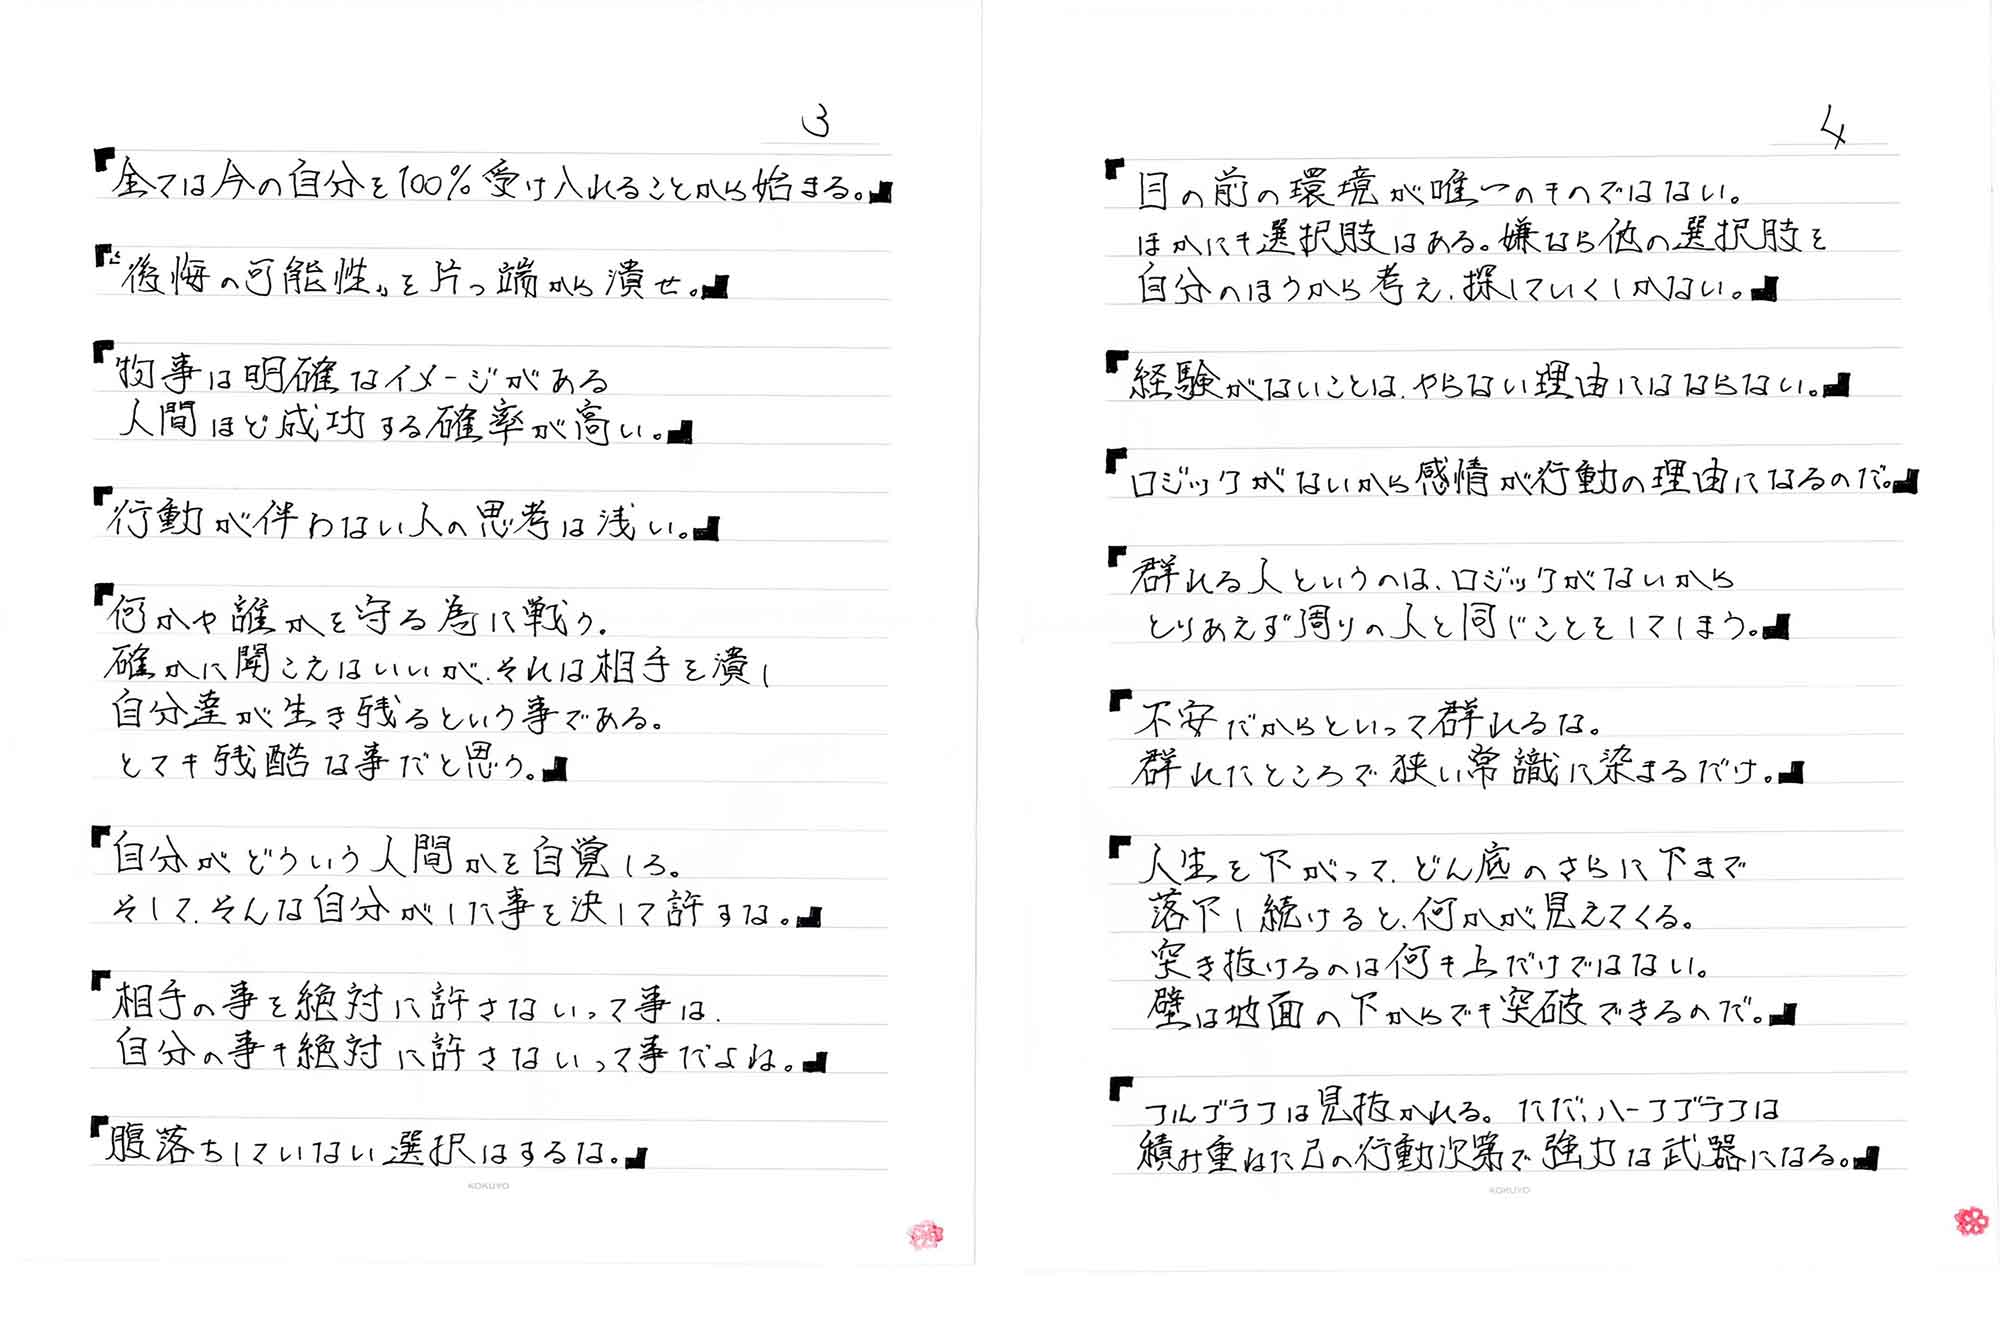 3
『全ては今の自分を100%受け入れることから始まる。』
『“後悔の可能性„を片っ端から潰せ。』
『物事は明確なイメージがある
人間ほど成功する確率が高い。』
『行動が伴わない人の思考は浅い。』
『何かや誰かを守る為に戦う。
確かに聞こえはいいが、それは相手を潰し
自分達が生き残るという事である。
とても残酷な事だと思う。』
『自分がどういう人間かを自覚しろ。
そして、そんな自分がした事を決して許すな。』
『相手の事を絶対に許さないって事は、
自分の事も絶対に許さないって事だよね。』
『腹落ちしていない選択はするな。』
KOKUYO
4
『目の前の環境が唯一のものではない。
ほかにも選択肢はある。嫌なら他の選択肢を
自分のほうから考え、探していくしかない。』
『経験がないことは、やらない理由にはならない。』
『ロジックがないから感情が行動の理由になるのだ。』
『群れる人というのは、ロジックがないから
とりあえず周りの人と同じことをしてしまう。』
『不安だからといって群れるな。
群れたところで狭い常識に染まるだけ。』
『人生を下がって、どん底のさらに下まで
落下し続けると、何かが見えてくる。
突き抜けるのは何も上だけではない。
壁は地面の下からでも突破できるのだ。』
『フルブラフは見抜かれる。ただ、ハーフブラフは
積み重ねた己の行動次第で強力な武器になる。』
KOKUYO